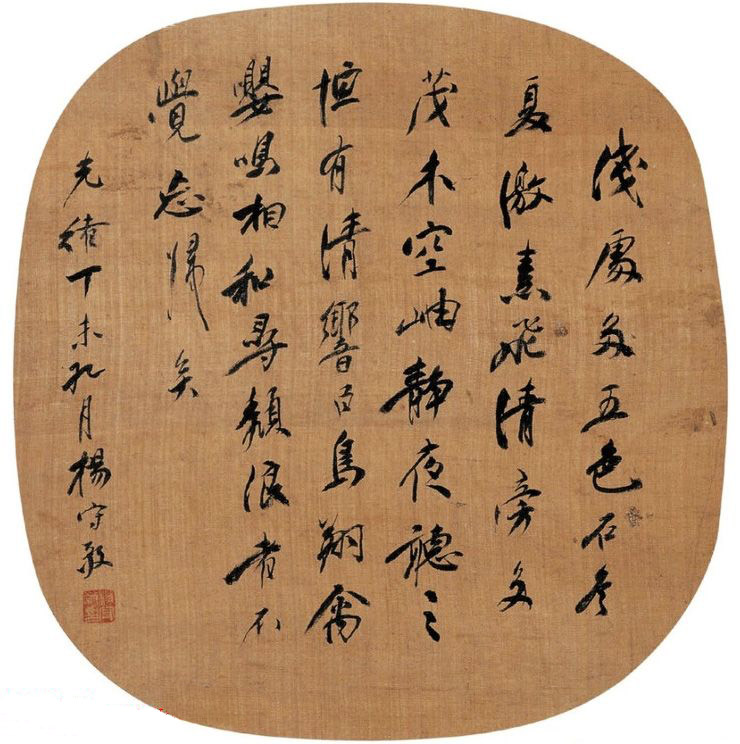 淺處多五色石冬
夏激素飛清旁多
茂木空岫靜夜聽之
恒有清響百鳥翔禽
嚶鳴相和尋頹浪者不
覺忘歸矣
光緒丁未月楊守敬